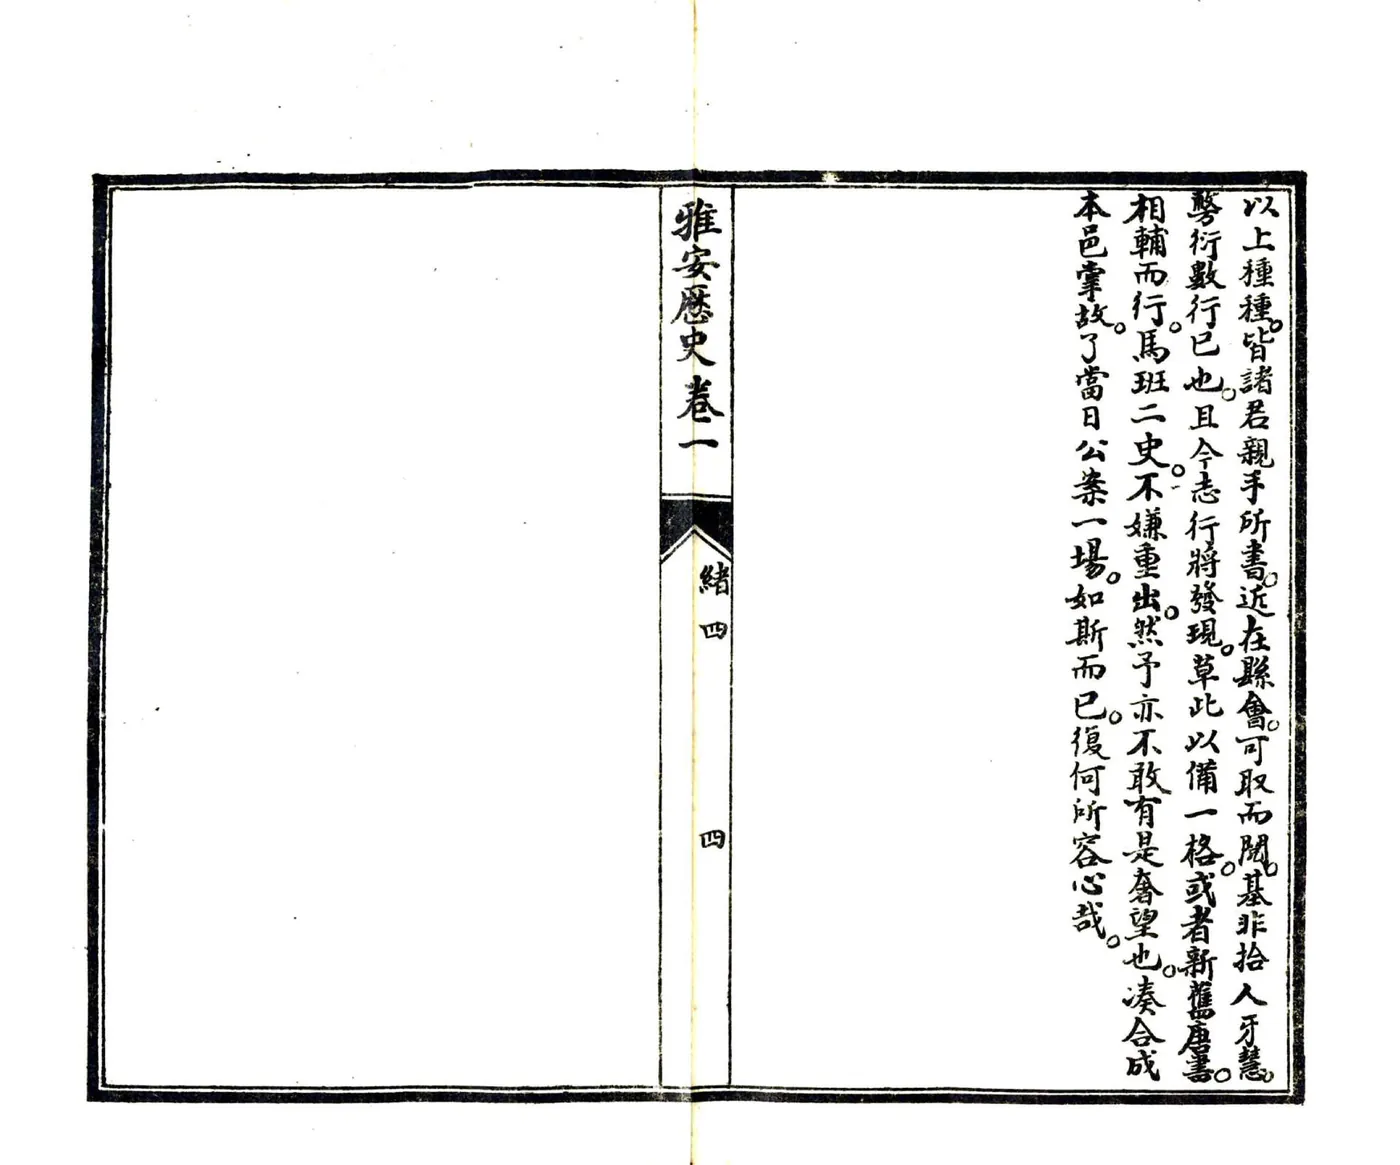 以上種種。皆諸君親手所書。近在縣會。可取而閱。基非拾人牙慧。
衍數行已也。且今志行將發現。草此以備一格。或者新舊唐書。
相輔而行。馬班二史。不嫌重出。然予亦不敢有是奢望也。湊合成
本邑掌故。了當日公案一場。如斯而已。復何所容心哉。
雅安歷史 卷一
緒 四
四